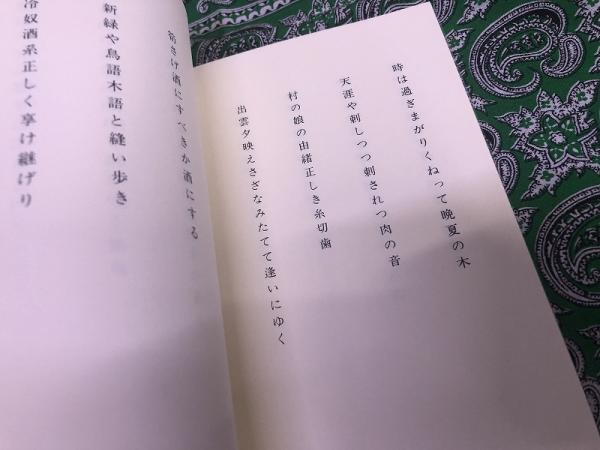 時は過ぎまがりくねって晩夏の木
天涯や刺しつつ刺されつ肉の音
村の娘の由緒正しき糸切歯
出雲夕映えさざなみたてて逢いにゆく
筍さけ酒にすべきか酒にする
新緑や鳥語木語と縫い歩き
冷奴酒系正しく享け継げり